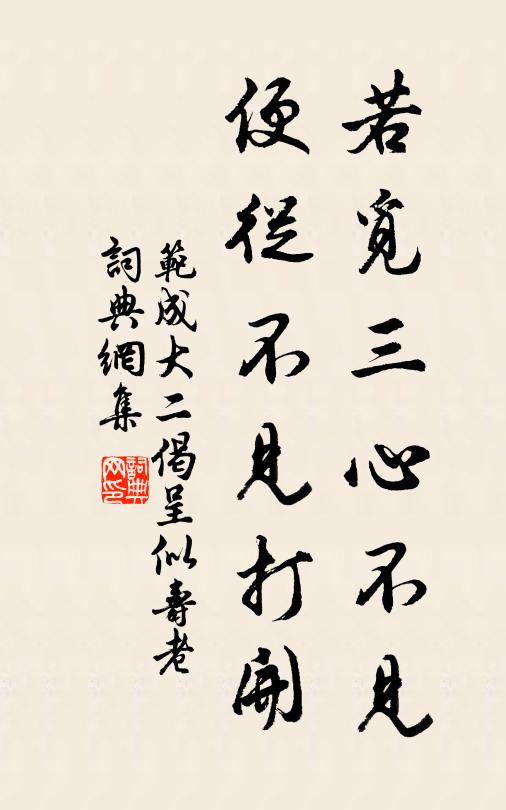 若覓三心不見
便從不見打開
範成大二偈呈似壽老
詞典網集
詞典网印